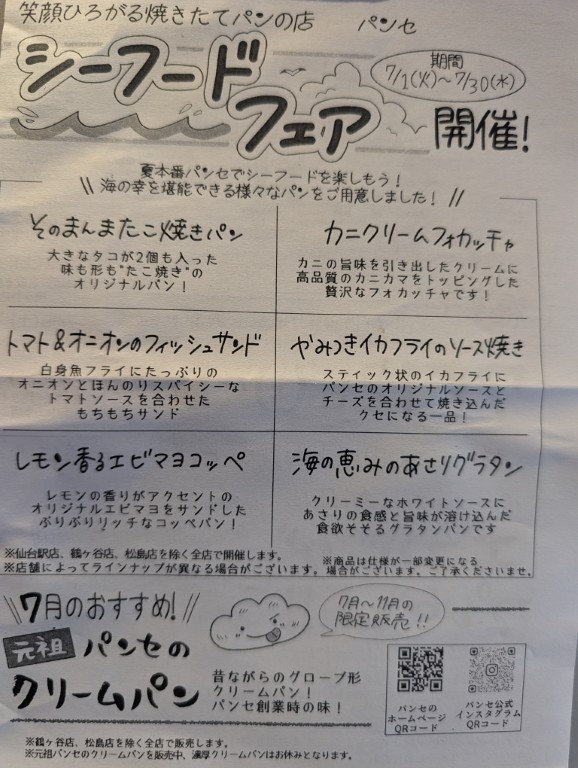 笑顔ひろがる焼きたてパンの店 パンセ
シーフード
フェア
期間
7/1(火)～7/30(水)
開催!
夏本番パンセでシーフードを楽しもう！
\\ 海の幸を堪能できる様々なパンをご用意しました！ //
そのまんまたこ焼きパン
大きなタコが2個も入った
味も形も"たこ焼き"の
オリジナルパン！
カニクリームフォカッチャ
カニの旨味を引き出したクリームに
高品質のカニカマをトッピングした
贅沢なフォカッチャです！
トマト&オニオンのフィッシュサンド
白身魚フライにたっぷりの
オニオンとほんのりスパイシーな
トマトソースを合わせた
もちもちサンド
やみつきイカフライのソース焼き
スティック状のイカフライに
パンセのオリジナルソースと
チーズを合わせて焼き込んだ
クセになる一品！
レモン香るエビマヨコッペ
レモンの香りがアクセントの
オリジナルエビマヨをサンドした
ぷりぷりリッチなコッペパン！
海の恵みのあさりグラタン
クリーミーなホワイトソースに
あさりの食感と旨味が溶け込んだ
食欲そそるグラタンパンです
※仙台駅店、鶴ヶ谷店、松島店を除く全店で開催します。
※店舗によってラインナップが異なる場合がございます。
※商品は仕様が一部変更になる
場合がございます。ご了承くださいませ。
\\7月のおすすめ!//
元祖 パンセの
クリームパン
7月～11月の
限定販売!!
昔ながらのグローブ形
クリームパン！
パンセ創業時の味！
パンセの
ホームページ
QRコード
パンセ公式
インスタグラム
QRコード
※鶴ヶ谷店、松島店を除く全店で販売します。
※元祖パンセのクリームパンを販売中、濃厚クリームパンはお休みとなります。